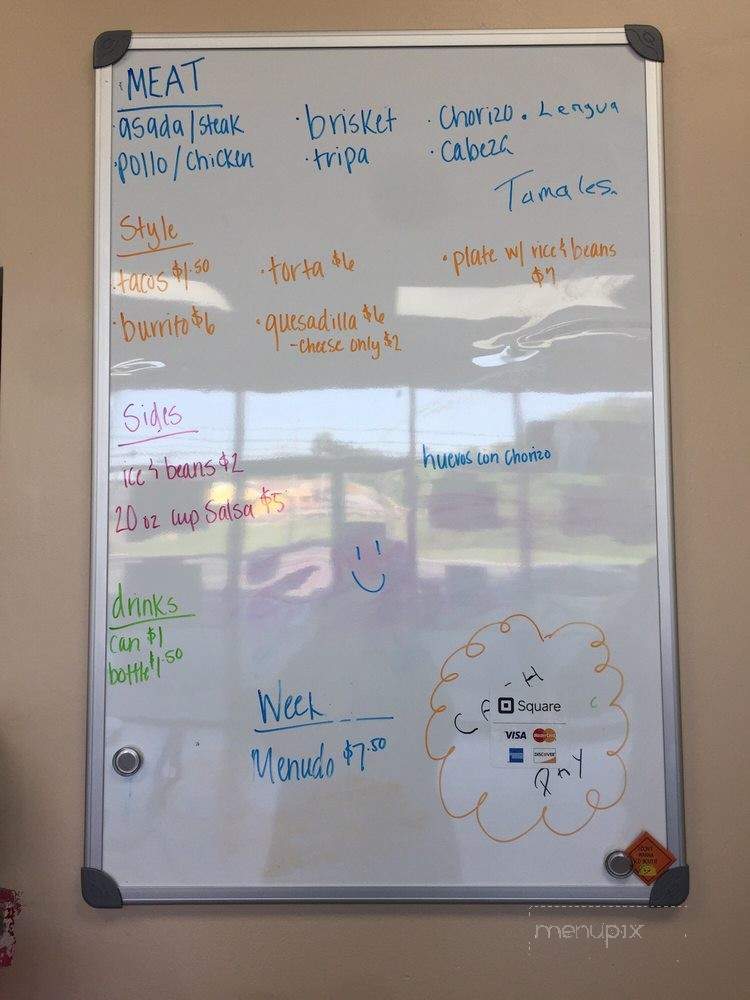 MEAT
·asada/steak ·brisket ·Chorizo ·Lengua
·pollo/chicken ·tripa ·cabeza
Tamales
Style
·tacos $1.50 ·torta $6 ·plate w/ rice & beans $7
·burrito $6 ·quesadilla $6
-cheese only $2
Sides
ice & beans $2
huevos con chorizo
20 oz cup Salsa $5
drinks
can $1
bottle $1.50
Week
Menudo $7.50
Square
VISA MasterCard
DISCOVER
menupix